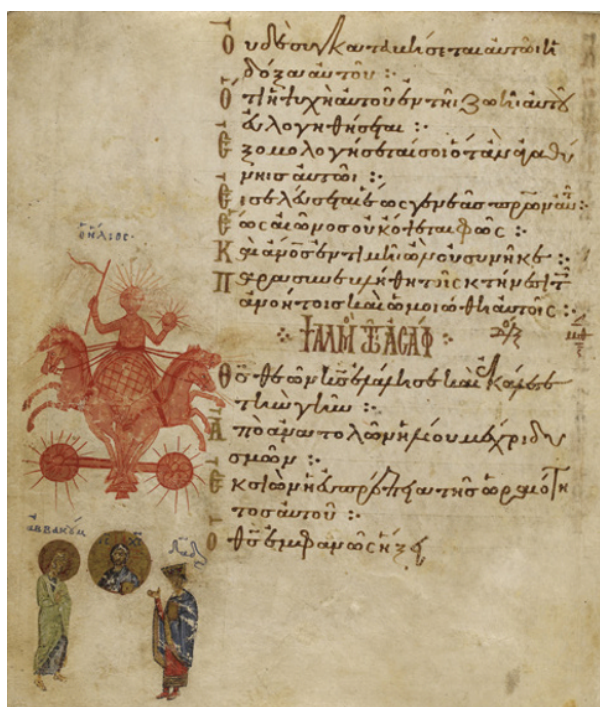 Οὐδὲ συγκαταβήσεται αὐτῶι ἡ
δόξα αὐτοῦ :·
Ὅτι ἡ ψυχὴ αὐτοῦ ἐν τῆι ζωῆι αὐτοῦ
εὐλογηθήσεται :·
Ἐξομολογήσεταί σοι ὅταν ἀγαθύ
νηις αὐτῶι :·
Εἰσελεύσεται ἕως γενεᾶς πρῶν αὐτ
Ἕως αἰῶνος οὐκ ὄψεται φῶς :·
Καὶ ἄνος ἐν τιμῆι ὢν οὐ συνῆκε :·
Παρασυνεβλήθη τοῖς κτήνεσι τ
ἀνοήτοις καὶ ὡμοιώθη αὐτοῖς :·
ΨΑΛΜ ΤΩ ΑΣΑΦ
Θς θεῶν κς ἐλάλησε καὶ ἐκάλεσε
τὴν γῆν :·
Ἀπὸ ἀνατολῶν ἡλίου μέχρι δυ
σμῶν :·
Ἐκ σιὼν ἡ εὐπρέπεια τῆς ὡραιότη
τος αὐτοῦ :·
Ὁ θς ἐμφανῶς ἥξει
ὁ ἥλιος
ἀββακούμ
ΙC ΧC
δαδ